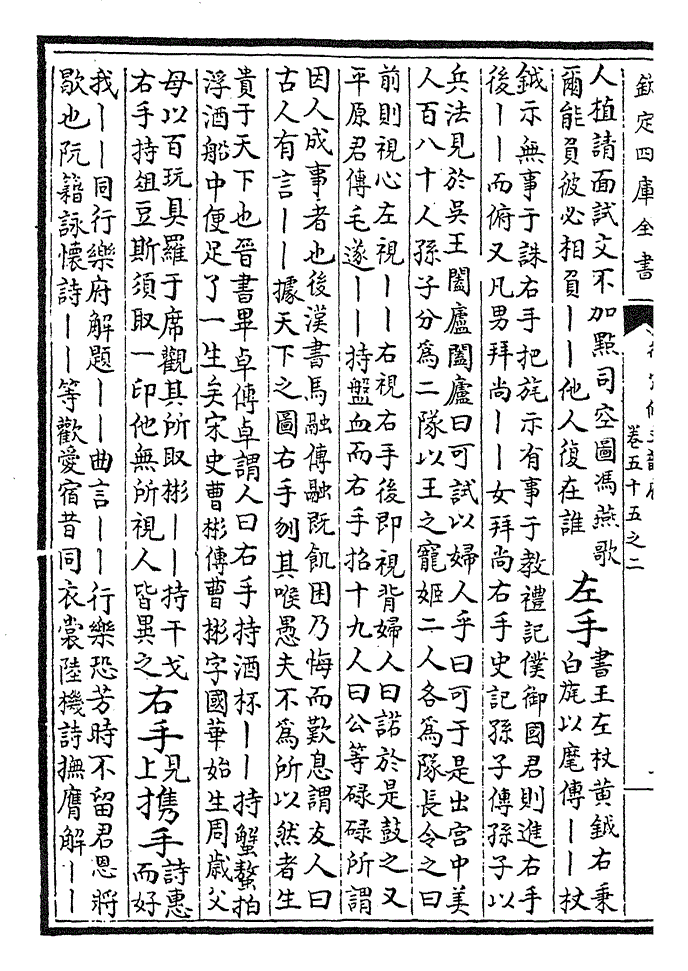 欽定四庫全書
卷五十五之二
人植請面試文不加點司空圖馮燕歌
爾能負彼必相負｜｜他人復在誰
左手
書王左杖黃鉞右秉
白旄以麾傳｜｜杖
鉞示無事于誅右手把旄示有事于教禮記僕御國君則進右手
後｜｜而俯又凡男拜尚｜｜女拜尚右手史記孫子傳孫子以
兵法見於吳王闔廬闔廬曰可試以婦人乎曰可于是出宮中美
人百八十人孫子分為二隊以王之寵姬二人各為隊長令之曰
前則視心左視｜｜右視右手後即視背婦人曰諾於是鼓之又
平原君傳毛遂｜｜持盤血而右手招十九人曰公等碌碌所謂
因人成事者也後漢書馬融傳融既飢困乃悔而歎息謂友人曰
古人有言｜｜據天下之圖右手刎其喉愚夫不為所以然者生
貴于天下也晉書畢卓傳卓謂人曰右手持酒杯｜｜持蟹螯拍
浮酒船中便足了一生矣宋史曹彬傳曹彬字國華始生周歲父
母以百玩具羅于席觀其所取彬｜｜持干戈
右手持俎豆斯須取一印他無所視人皆異之
右手
見
上
攜手
詩惠
而好
我｜｜同行樂府解題｜｜曲言｜｜行樂恐芳時不留君恩將
歇也阮籍詠懷詩｜｜等歡愛宿昔同衣裳陸機詩撫膺解｜｜